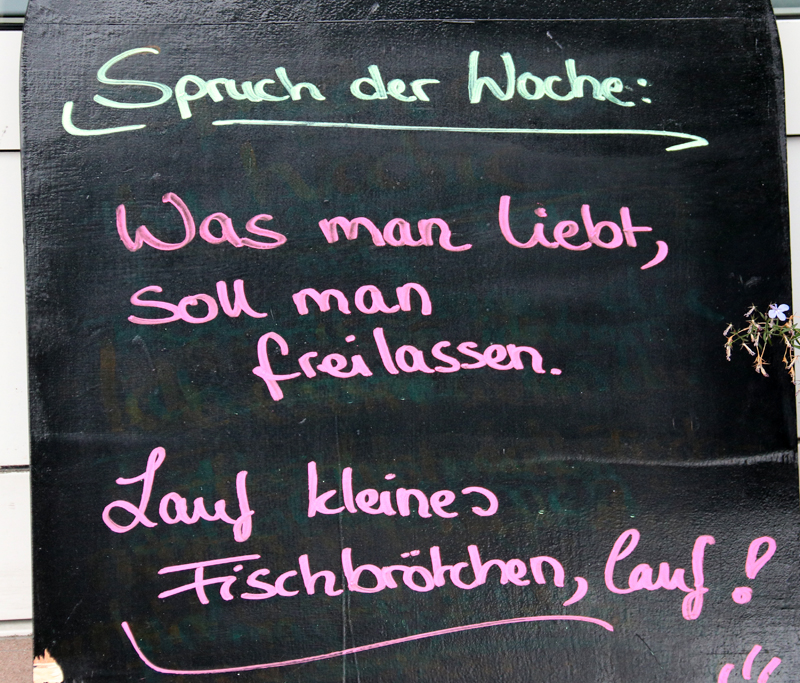 Spruch der Woche:
Was man liebt,
soll man
freilassen.
Lauf kleines
Fischbrötchen, lauf!